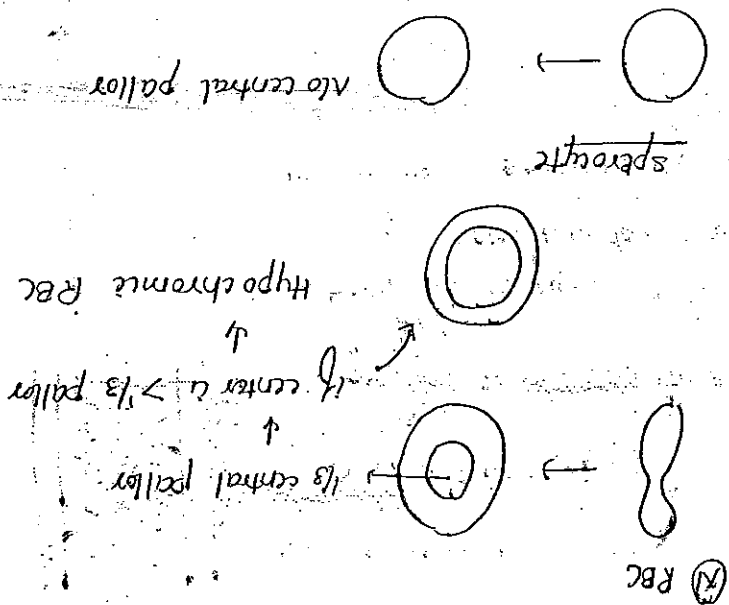 Ⓝ RBC
1/3 central pallor
if center is > 1/3 pallor
Hypochromic RBC
Sperocyte
No central pallor